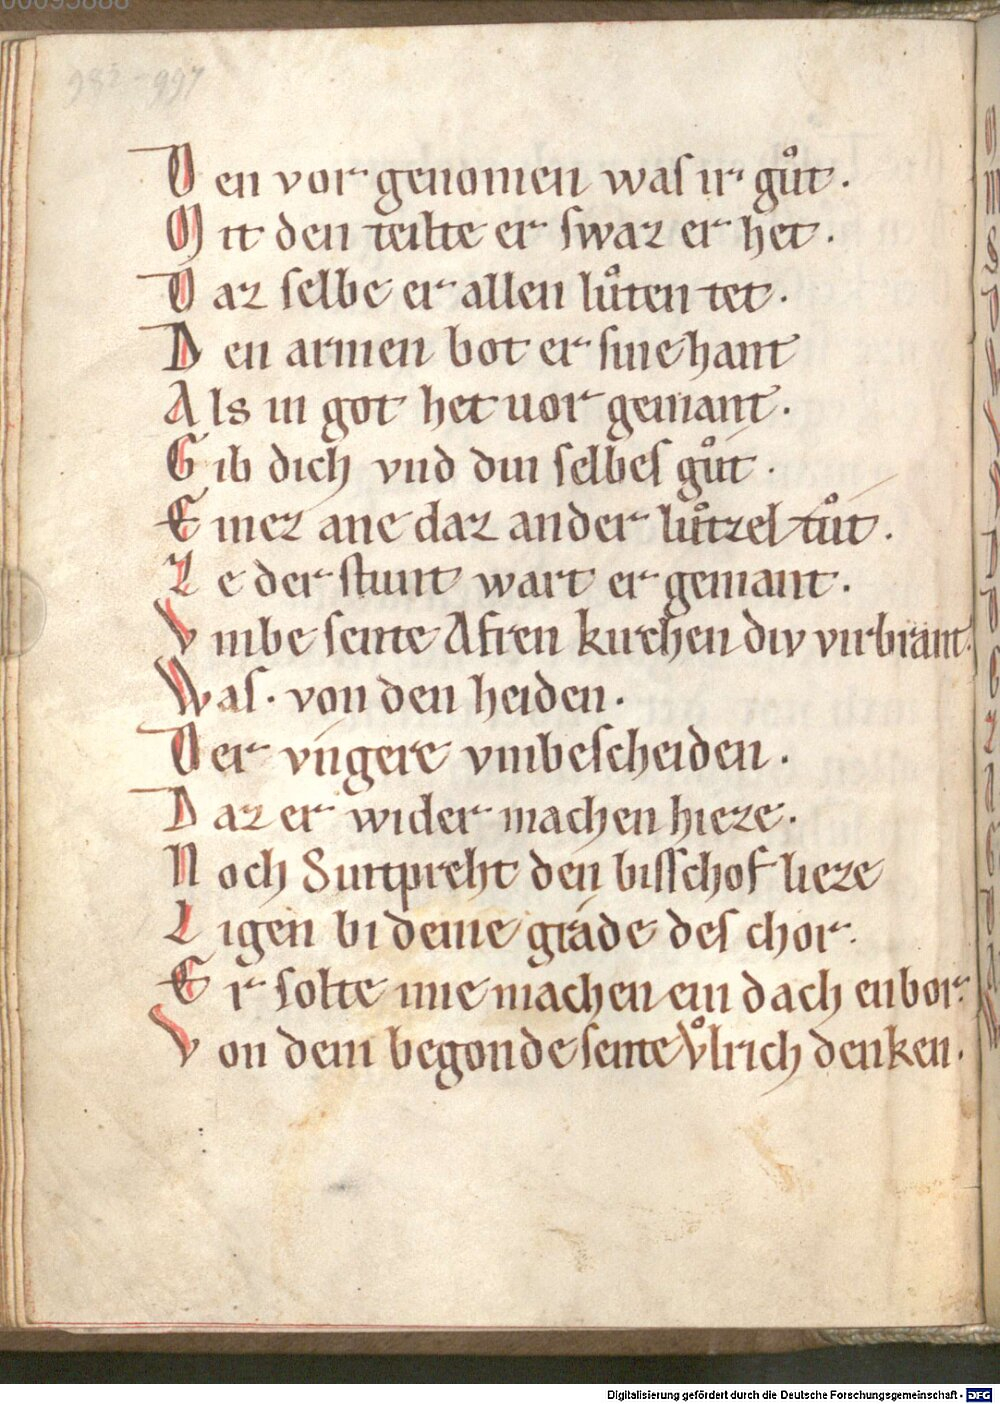 00095888
982-997
Den vor genomen was ir gůt.
Mit den teilte er swaz er het.
Daz selbe er allen lůten tet.
Den armen bot er sine hant
Als in got het uor gemant.
Gib dich vnd din selbes gůt.
Einez ane daz ander lůtzel tůt.
Ze der stunt wart er gemant.
Vmbe sente Afren kirchen div virbrant.
Was. von den heiden.
Der vngere vmbescheiden.
Daz er wider machen hieze.
Noch Suntpreht den bisschof lieze
Ligen bi deme grade des chor.
Er solte ime machen ein dach enbor.
Von dem begonde sente Vͦlrich denken.
Digitalisierung gefördert durch die Deutsche Forschungsgemeinschaft - DFG